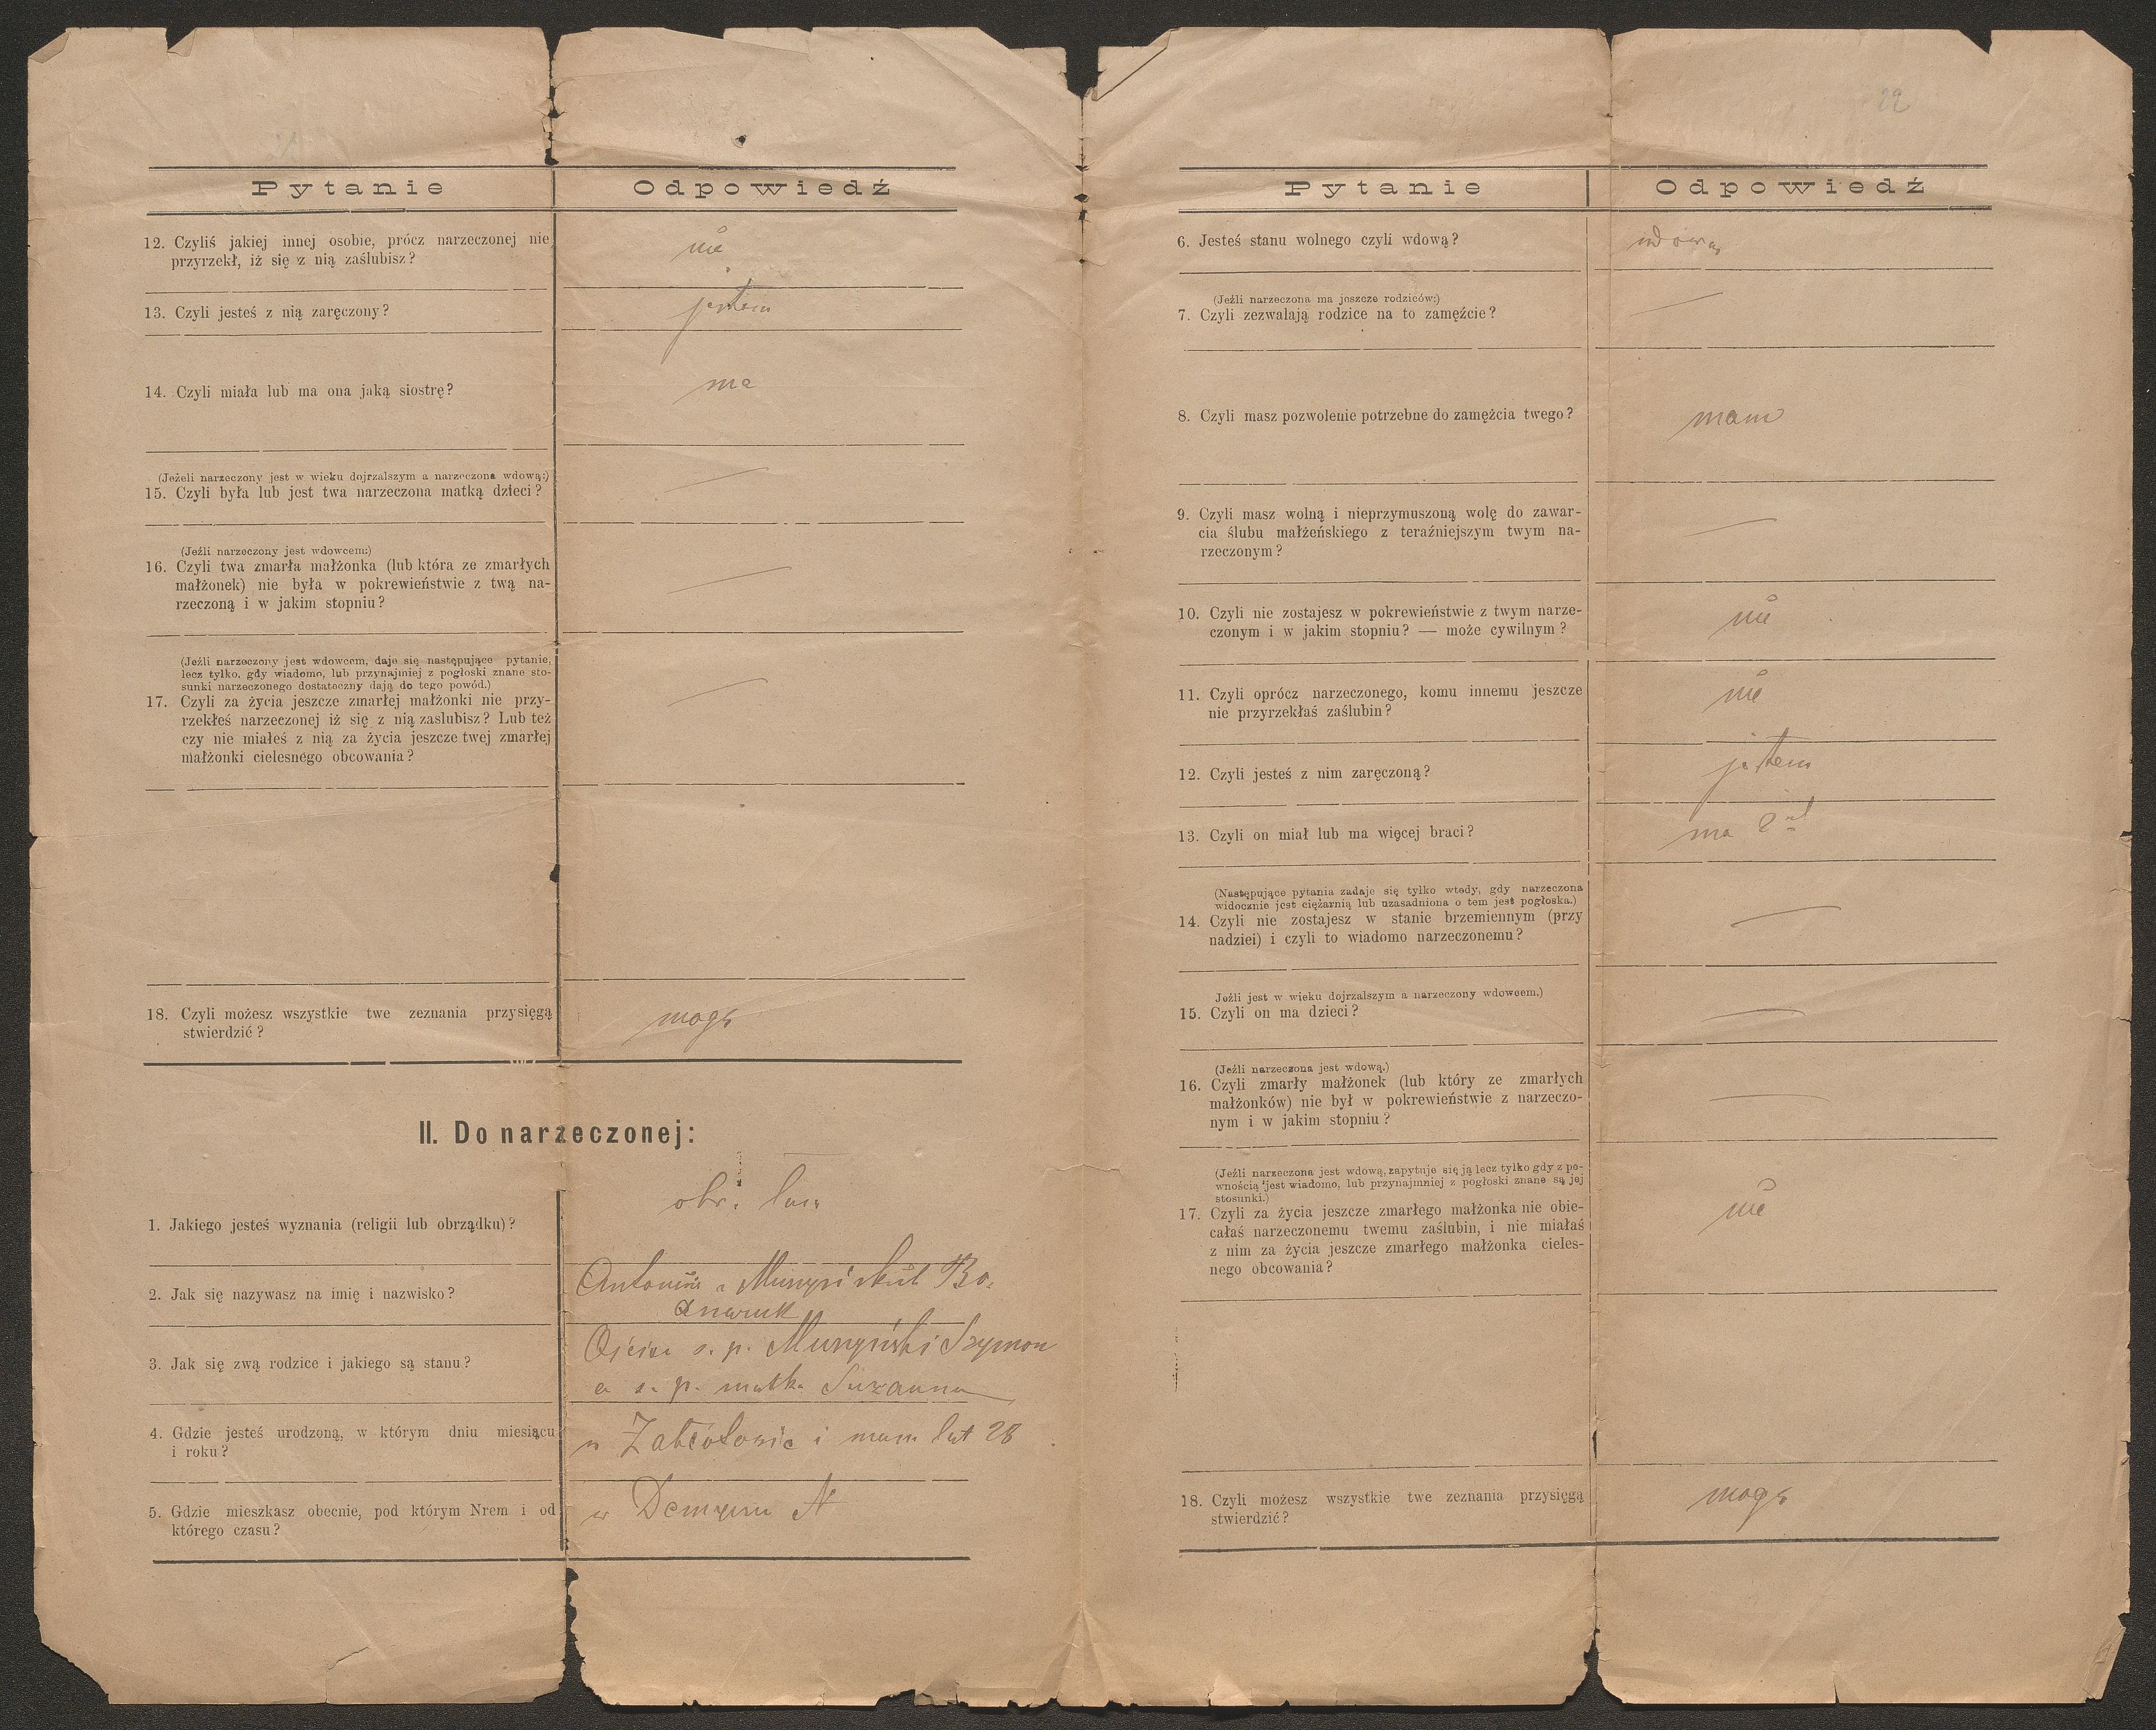 Pytanie
Odpowiedź
12. Czyliś jakiej innej osobie, prócz narzeczonej nie
przyrzekł, iż się z nią zaślubisz?
nie
13. Czyli jesteś z nią zaręczony?
jestem
14. Czyli miała lub ma ona jaką siostrę?
ma
(Jeżeli narzeczony jest w wieku dojrzalszym a narzeczona wdową:)
15. Czyli była lub jest twa narzeczona matką dzieci?
—
(Jeźli narzeczony jest wdowcem:)
16. Czyli twa zmarła małżonka (lub która ze zmarłych
małżonek) nie była w pokrewieństwie z twą na-
rzeczoną i w jakim stopniu?
—
(Jeźli narzeczony jest wdowcem, daje się następujące pytanie,
lecz tylko, gdy wiadomo, lub przynajmiej z pogłoski znane sto-
sunki narzeczonego dostateczny dają do tego powód.)
17. Czyli za życia jeszcze zmarłej małżonki nie przy-
rzekłeś narzeczonej iż się z nią zaslubisz? Lub też
czy nie miałeś z nią za życia jeszcze twej zmarłej
małżonki cielesnego obcowania?
—
18. Czyli możesz wszystkie twe zeznania przysięgą
stwierdzić?
mogę
II. Do narzeczonej:
1. Jakiego jesteś wyznania (religii lub obrządku)?
obr.
2. Jak się nazywasz na imię i nazwisko?
Antonina
3. Jak się zwą rodzice i jakiego są stanu?
Ojciec s. p. Muszyński Szymon
a s. p. matka Zuzanna
4. Gdzie jesteś urodzoną, w którym dniu miesiącu
i roku?
w i mam lat 28
5. Gdzie mieszkasz obecnie, pod którym Nrem i od
którego czasu?
w N
22
Pytanie
Odpowiedź
6. Jesteś stanu wolnego czyli wdową?
wdową
(Jeźli narzeczona ma jeszcze rodziców:)
7. Czyli zezwalają rodzice na to zamęźcie?
—
8. Czyli masz pozwolenie potrzebne do zamęźcia twego?
mam
9. Czyli masz wolną i nieprzymuszoną wolę do zawar-
cia ślubu małżeńskiego z teraźniejszym twym na-
rzeczonym?
—
10. Czyli nie zostajesz w pokrewieństwie z twym narze-
czonym i w jakim stopniu? — może cywilnym?
nie
11. Czyli oprócz narzeczonego, komu innemu jeszcze
nie przyrzekłaś zaślubin?
nie
12. Czyli jesteś z nim zaręczoną?
jestem
13. Czyli on miał lub ma więcej braci?
ma 2
(Następujące pytania zadaje się tylko wtedy, gdy narzeczona
widocznie jest ciężarnią lub uzasadniona o tem jest pogłoska.)
14. Czyli nie zostajesz w stanie brzemiennym (przy
nadziei) i czyli to wiadomo narzeczonemu?
—
Jeźli jest w wieku dojrzalszym a narzeczony wdowcem.)
15. Czyli on ma dzieci?
—
(Jeźli narzeczona jest wdową.)
16. Czyli zmarły małżonek (lub który ze zmarłych
małżonków) nie był w pokrewieństwie z narzeczo-
nym i w jakim stopniu?
—
(Jeźli narzeczona jest wdową, zapytuje się ją lecz tylko gdy z pe-
wnością jest wiadomo, lub przynajmniej z pogłoski znane są jej
stosunki.)
17. Czyli za życia jeszcze zmarłego małżonka nie obie-
całaś narzeczonemu twemu zaślubin, i nie miałaś
z nim za życia jeszcze zmarłego małżonka cieles-
nego obcowania?
nie
18. Czyli możesz wszystkie twe zeznania przysięgą
stwierdzić?
mogę